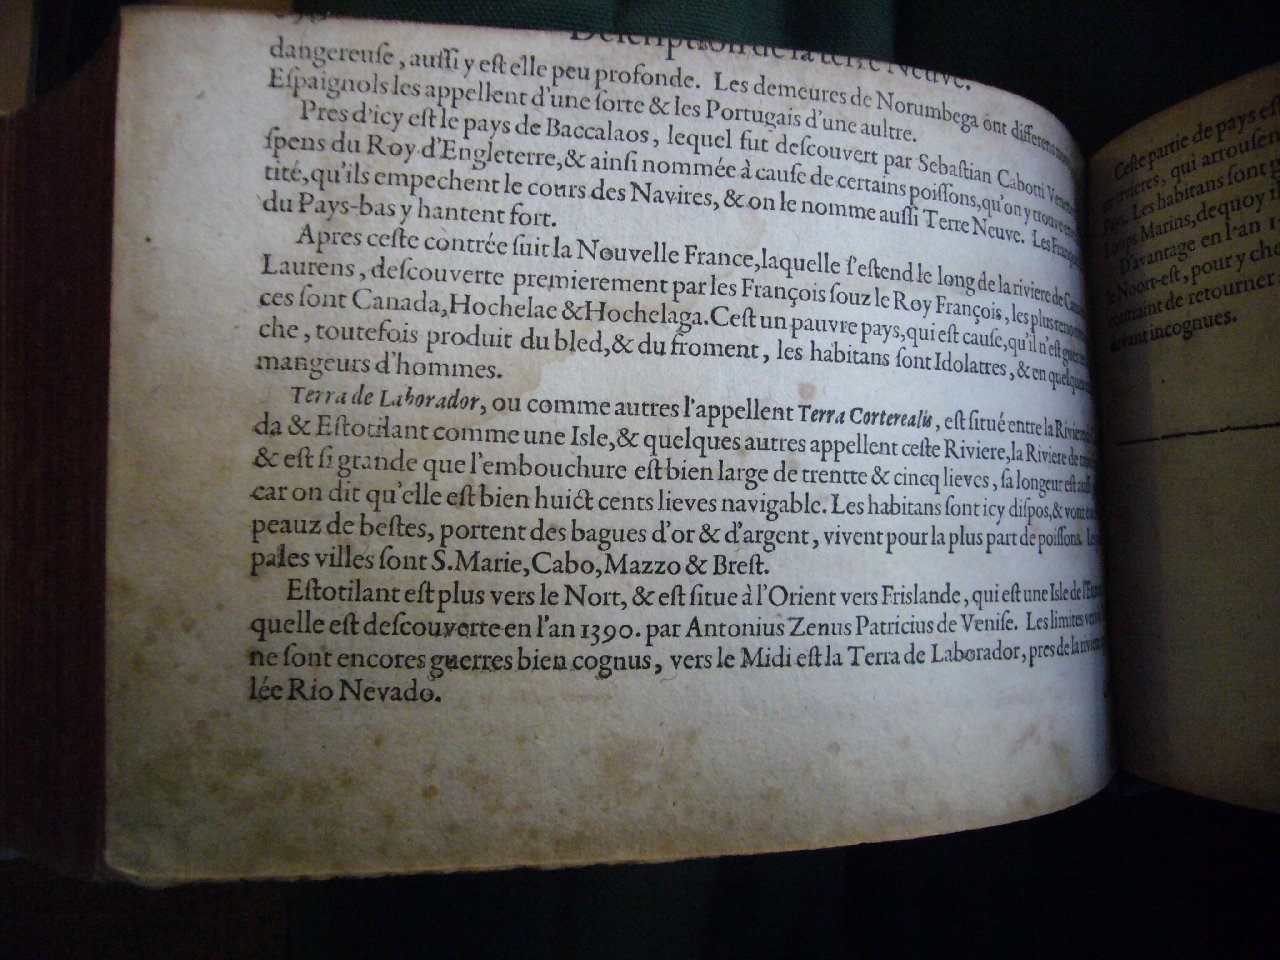 Description de la terre Neuve.
dangereuſe, auſſi y eſt elle peu profonde. Les demeures de Norumbega ont different
Eſpaignols les appellent d'une ſorte & les Portugais d'une aultre.
Pres d'icy eſt le pays de Baccalaos, lequel fut deſcouvert par Sebaſtian Cabotti
ſpens du Roy d'Engleterre, & ainſi nommée à cauſe de certains poiſſons, qu'on y trouve en
tité, qu'ils empechent le cours des Navires, & on le nomme auſſi Terre Neuve. Les
du Pays-bas y hantent fort.
Apres ceſte contrée ſuit la Nouvelle France, laquelle ſ'eſtend le long de la riviere de
Laurens, deſcouverte premierement par les François ſouz le Roy François, les plus
ces ſont Canada, Hochelae & Hochelaga. Ceſt un pauvre pays, qui eſt cauſe, qu'il n'eſt
che, toutefois produit du bled, & du froment, les habitans ſont Idolatres, & en
mangeurs d'hommes.
Terra de Laborador, ou comme autres l'appellent Terra Corterealis, eſt ſitué entre la
da & Eſtotilant comme une Isle, & quelques autres appellent ceſte Riviere, la Riviere de
& eſt ſi grande que l'embouchure eſt bien large de trentte & cincq lieves, ſa longeur eſt
car on dit qu'elle eſt bien huict cents lieves navigable. Les habitans ſont icy diſpos, &
peauz de beſtes, portent des bagues d'or & d'argent, vivent pour la plus part de poiſſons.
pales villes ſont S. Marie, Cabo, Mazzo & Breſt.
Eſtotilant eſt plus vers le Nort, & eſt ſitue à l'Orient vers Frislande, qui eſt une Isle de
quelle eſt deſcouverte en l'an 1390. par Antonius Zenus Patricius de Veniſe. Les limites
ne ſont encores guerres bien cognus, vers le Midi eſt la Terra de Laborador, pres de la
lée Rio Nevado.
Ceſte partie de pays
rivieres, qui
Les habitans ſont
Loups Marins, de quoy
D'avantage en l'an
Noort-eſt, pour y
de retourner
incognues.